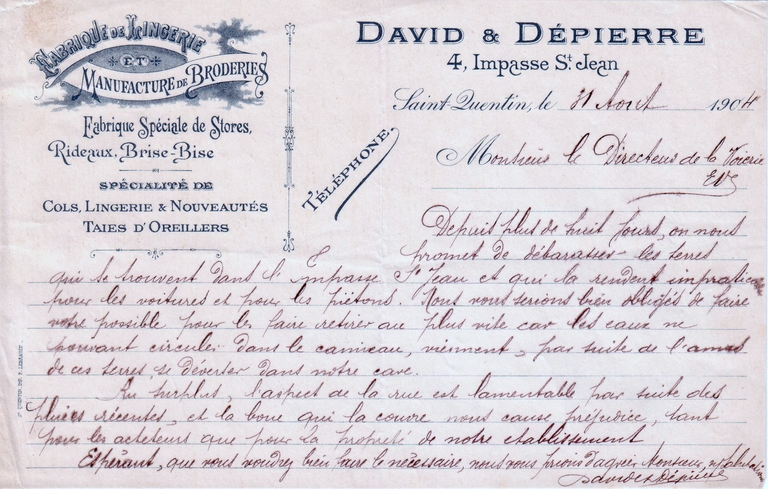 FABRIQUE DE LINGERIE
ET
MANUFACTURE DE BRODERIES
Fabrique Spéciale de Stores,
Rideaux, Brise-Bise
SPÉCIALITÉ DE
COLS, LINGERIE & NOUVEAUTÉS
TAIES D'OREILLERS
TÉLÉPHONE
DAVID & DÉPIERRE
4, Impasse St Jean
Saint-Quentin, le 31 Aout 1904
Monsieur le Directeur de la Voierie
EV
Depuis plus de huit jours, on nous
promet de débarasser les terres
qui se trouvent dans l'Impasse St Jean et qui la rendent impraticable
pour les voitures et pour les piétons. Nous vous serions bien obligés de faire
votre possible pour les faire retirer au plus vite car les eaux ne
pouvant circuler dans le caniveau, viennent, par suite de l'amas
de ces terres, se déverser dans notre cave.
Au surplus, l'aspect de la rue est lamentable par suite des
pluies récentes, et la boue qui la couvre nous cause préjudice, tant
pour les acheteurs que pour la propreté de notre etablissement
Espérant, que vous voudrez bien faire le nécessaire, nous vous prions d'agréer Monsieur, nos salutations
David & Dépierre